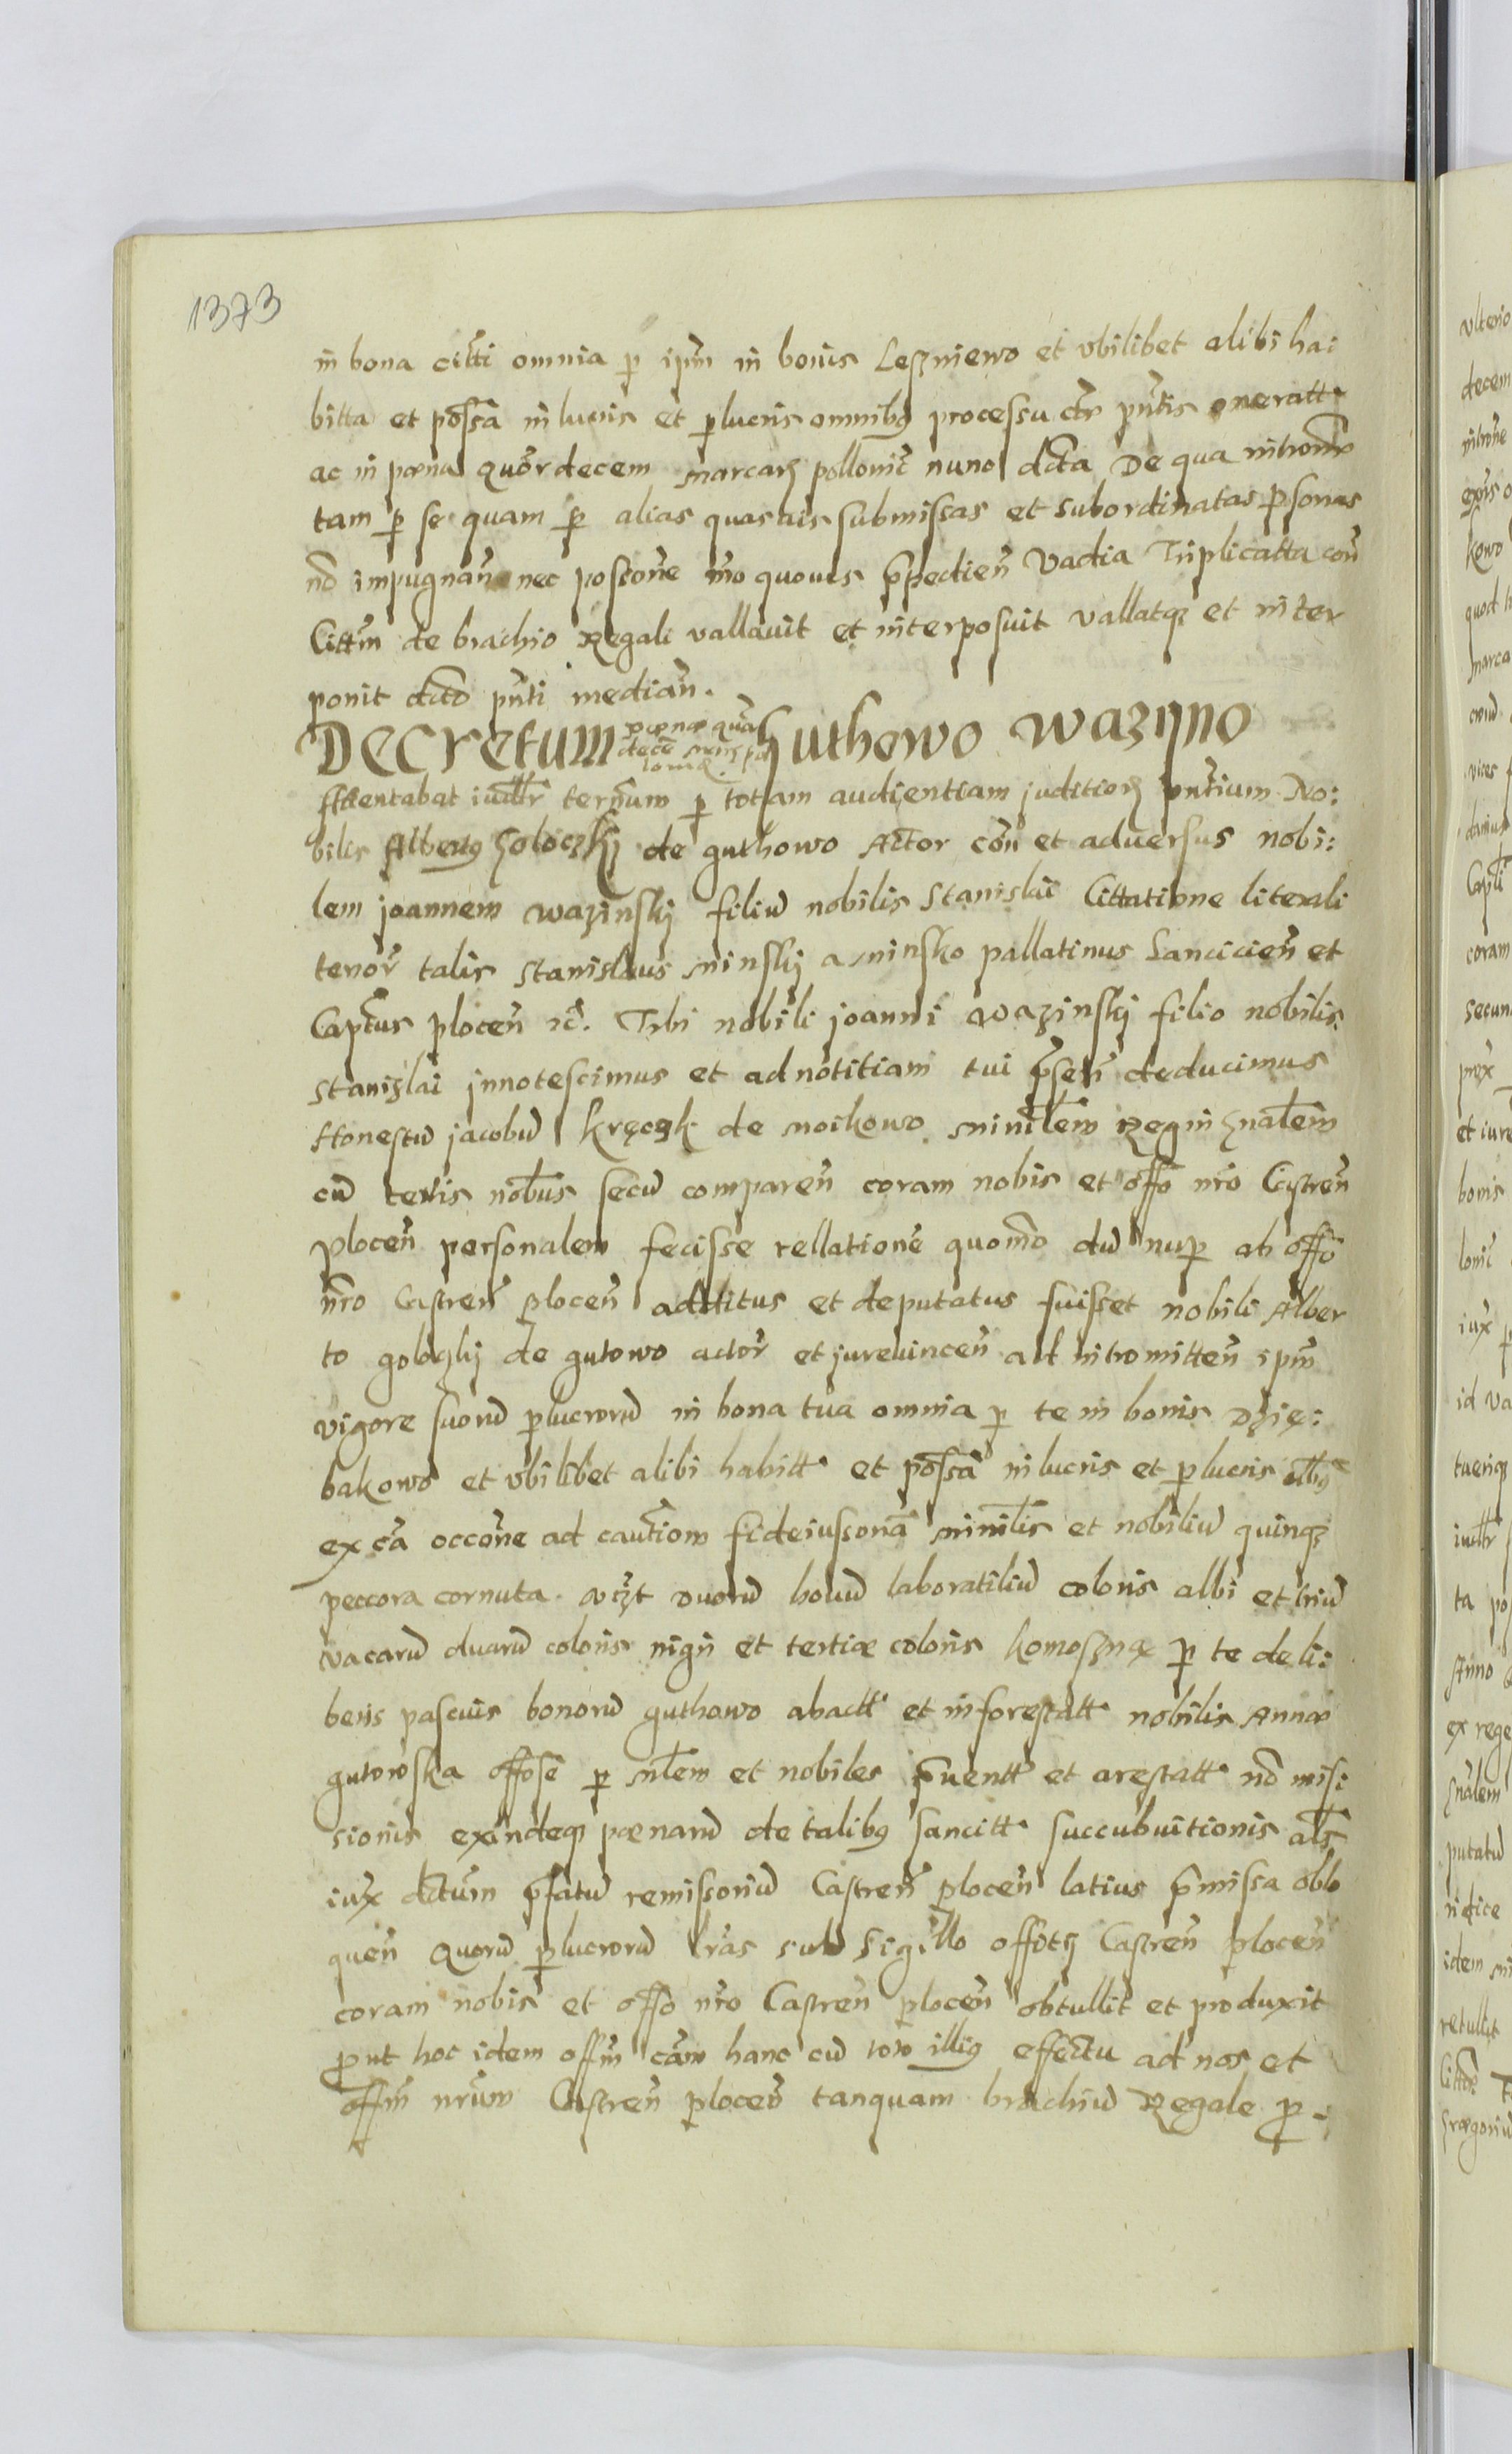 1373
in bona citti omnia p ipm in bonis Leszniewo et vbilibet alibi ha:
bitta et possa in lucris et plucris omnibg processu ctr pntis oneratt
ac in pœna quordecem marcarz pollonic nunc dcta De qua introm
tam p se quam p alias quasuis submissas et subordinatas psonas
no impugnan nec possone mo quouis ppedien Vadia Triplicatta con
Cittm de brachio Regali vallauit et interposuit vallatqz et inter
ponit dcto pnti median.
Decretum pœnæ quor decē mrrz pol lonic Guthowo Wazyno
Attentabat iudltr ternum p totam audientiam juditiorz pntium No:
bilis Albertg Goloczkij de guthowo Actor con et aduersus nobi:
lem joannem wazinskj filiu nobilis Stanislai Cittatione literali
tenor talis Stanislaus minskj a minsko pallatinus Lancicien et
Captus plocen rc. Tibi nobili joanni wazinskj filio nobilis
Stanislai jnnotescimus et ad notitiam tui psen deducimus
Honestu jacobu kręcek de moikowo minilem Regni gnalem
cu terris nobus secu comparen coram nobis et offo nro Castren
plocen personalem fecisse rellatione quomo du nup ab offo
nro Castren plocen additus et deputatus fuisset nobili Alber
to goloczkj de gutowo actor et jureuincen ad intromitten ipm
vigore suoru plucroru in bona tua omnia p te in bonis Dzię:
bakowo et vbilibet alibi habitt et possa in lucris et plucris
ex ca occone ad cautiom fideiussoria minilis et nobiliu quinqz
peccora cornuta. vczt duoru bouu laboratiliu coloris albi et triu
vacaru duaru coloris nigri et tertiæ coloris komoszną p te de li:
beris pascuis bonoru guthowo abactt et inforestatt nobilis Annæ
gutowska offose p mlem et nobiles puentt et arestatt no misi
sionis exindeqz pœnaru de talibg sancitt succubuitionis als
iux dctum pfatu remissoriu Castren plocen latius pmissa oblo
quen Quoru plucroru lras sub Sigillo offitij Castren plocen
coram nobis et offo nro Castren plocen obtullit et produxit
put hoc idem offm cam hanc cu toto illig effectu ad nos et
offm nrum Castren plocen tanquam brachiu Regale p: